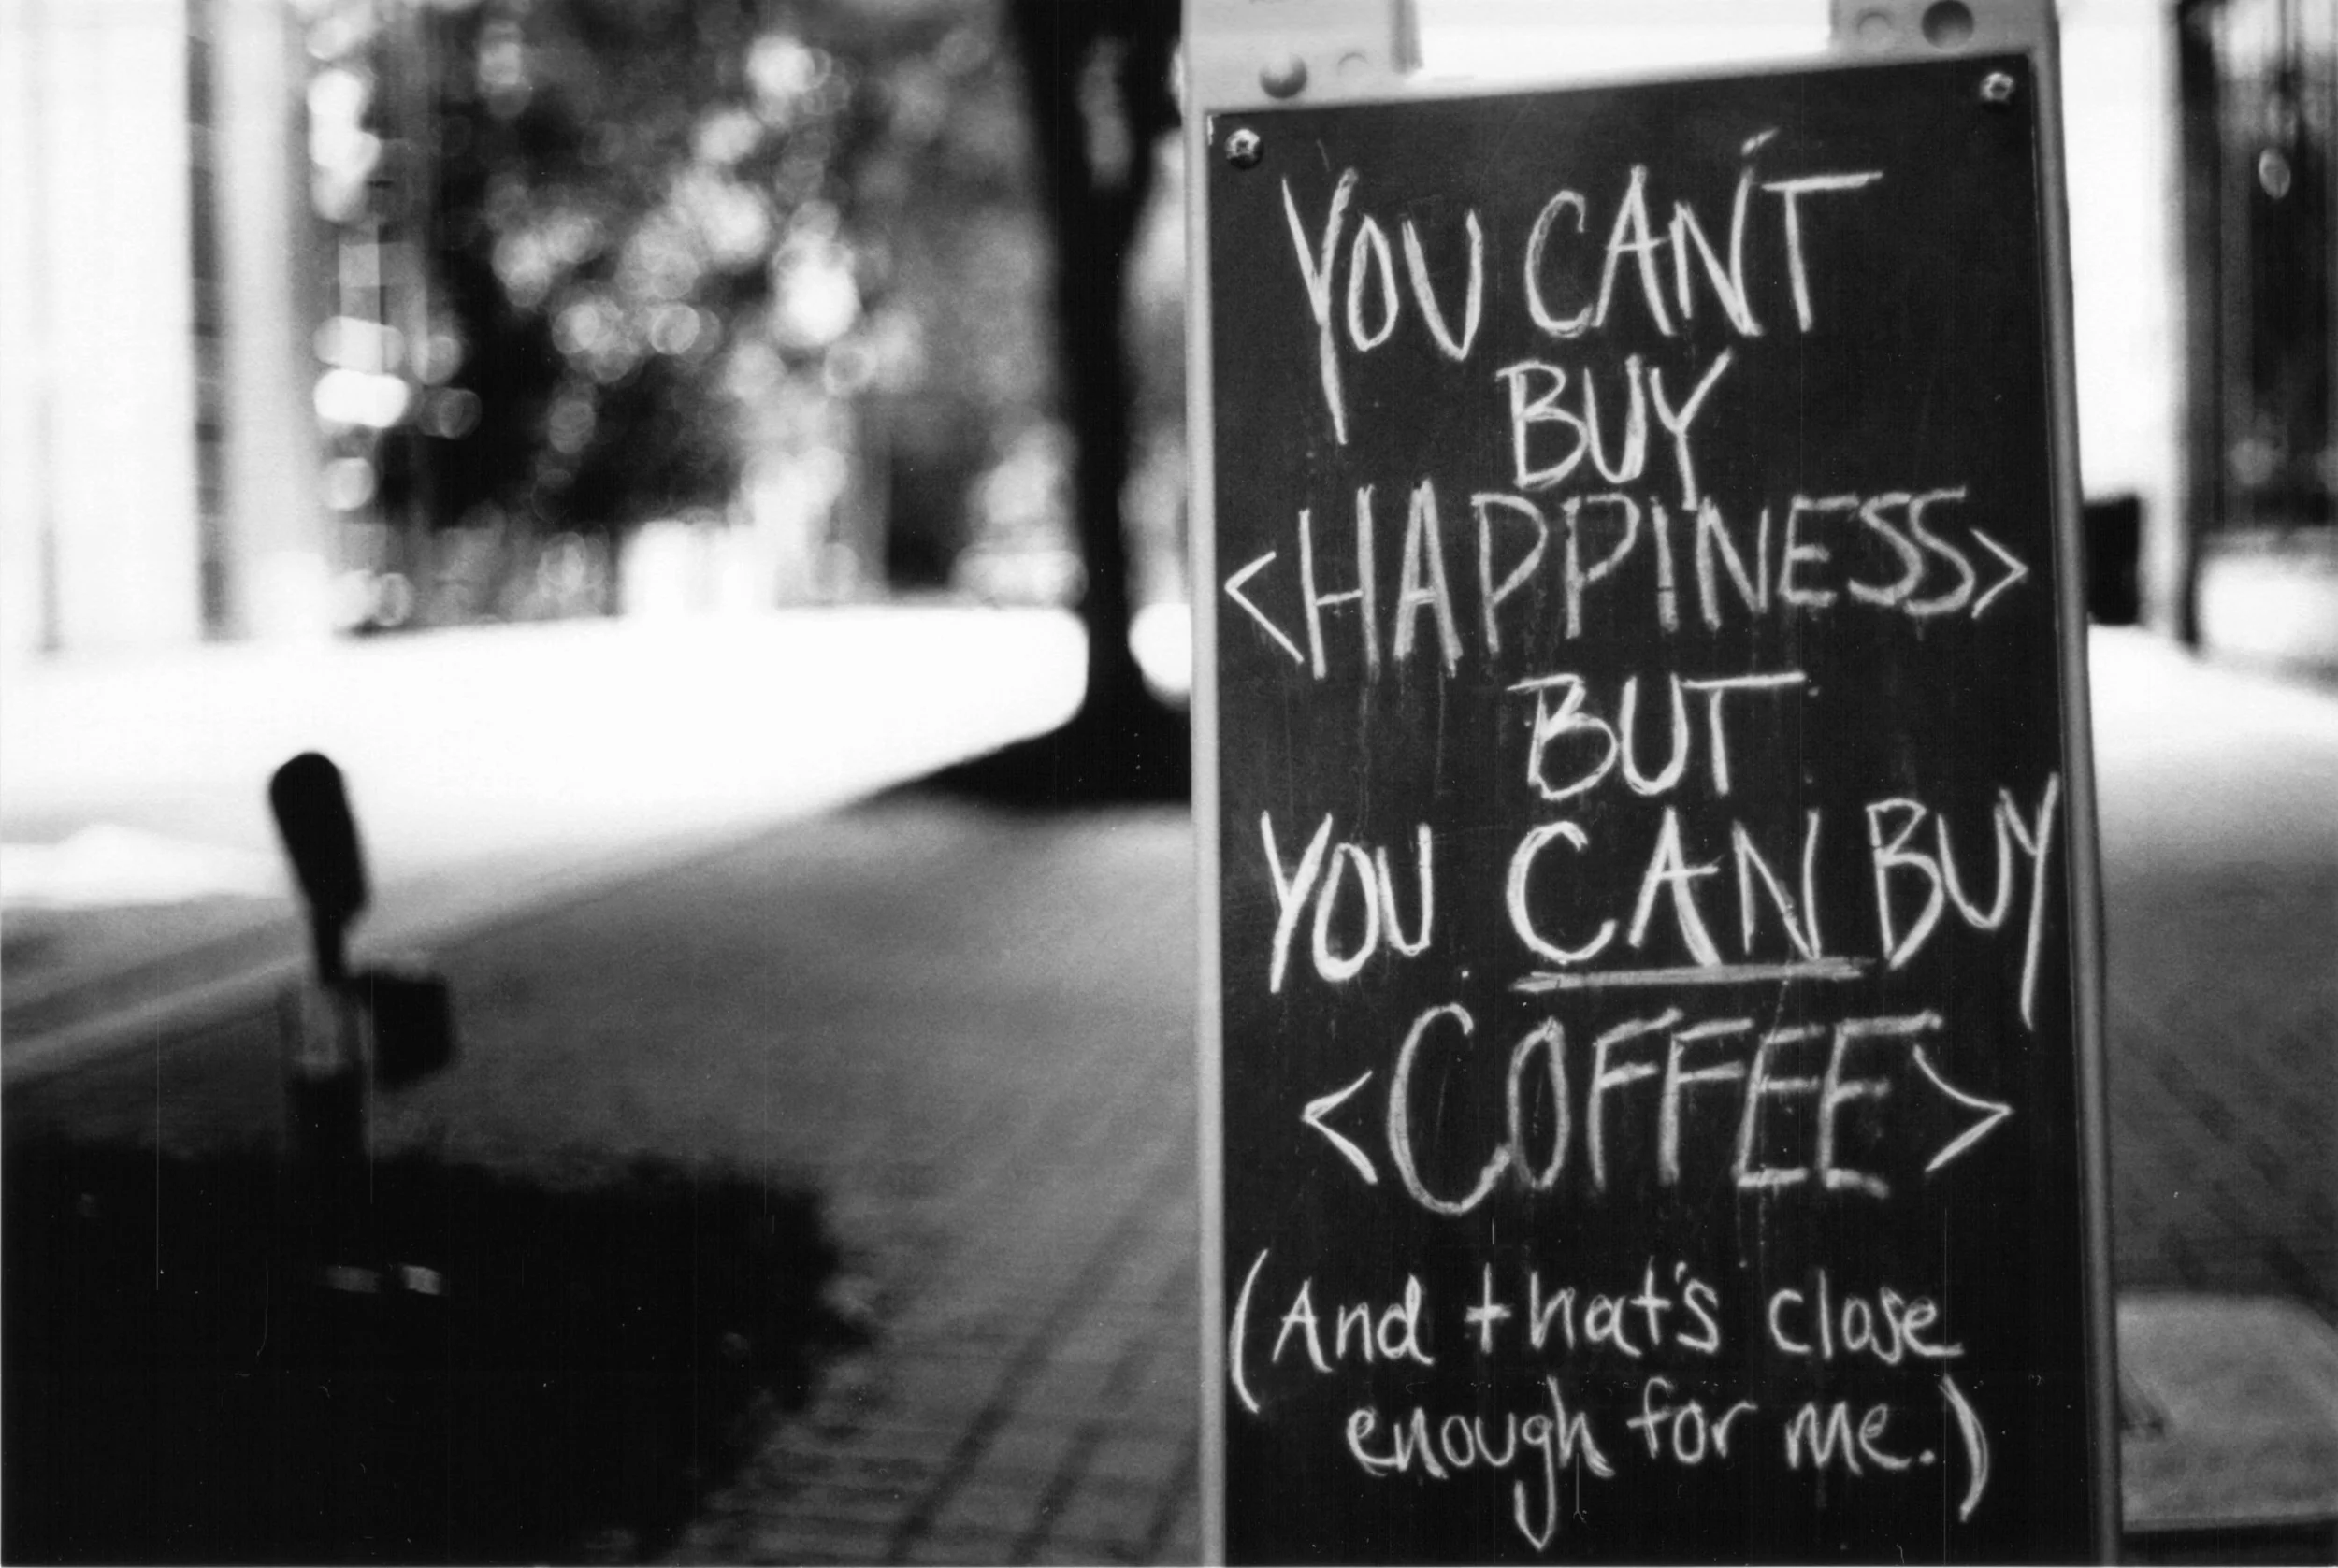 YOU CAN'T
BUY
<HAPPINESS>
BUT
YOU CAN BUY
<COFFEE>
(And that's close
enough for me.)